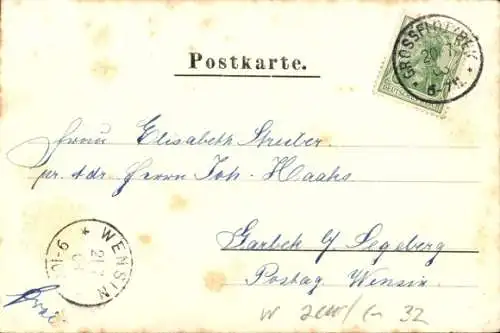 Postkarte.
GROSSFLOTTBEK
5-7N.
DEUTSCHES REICH
Frau Elisabeth Struber
pr. Adr. Herrn Joh. Haaks
Garbek b/ Segeberg
Postag. Wensin
* WENSIN
21.
9-10
32